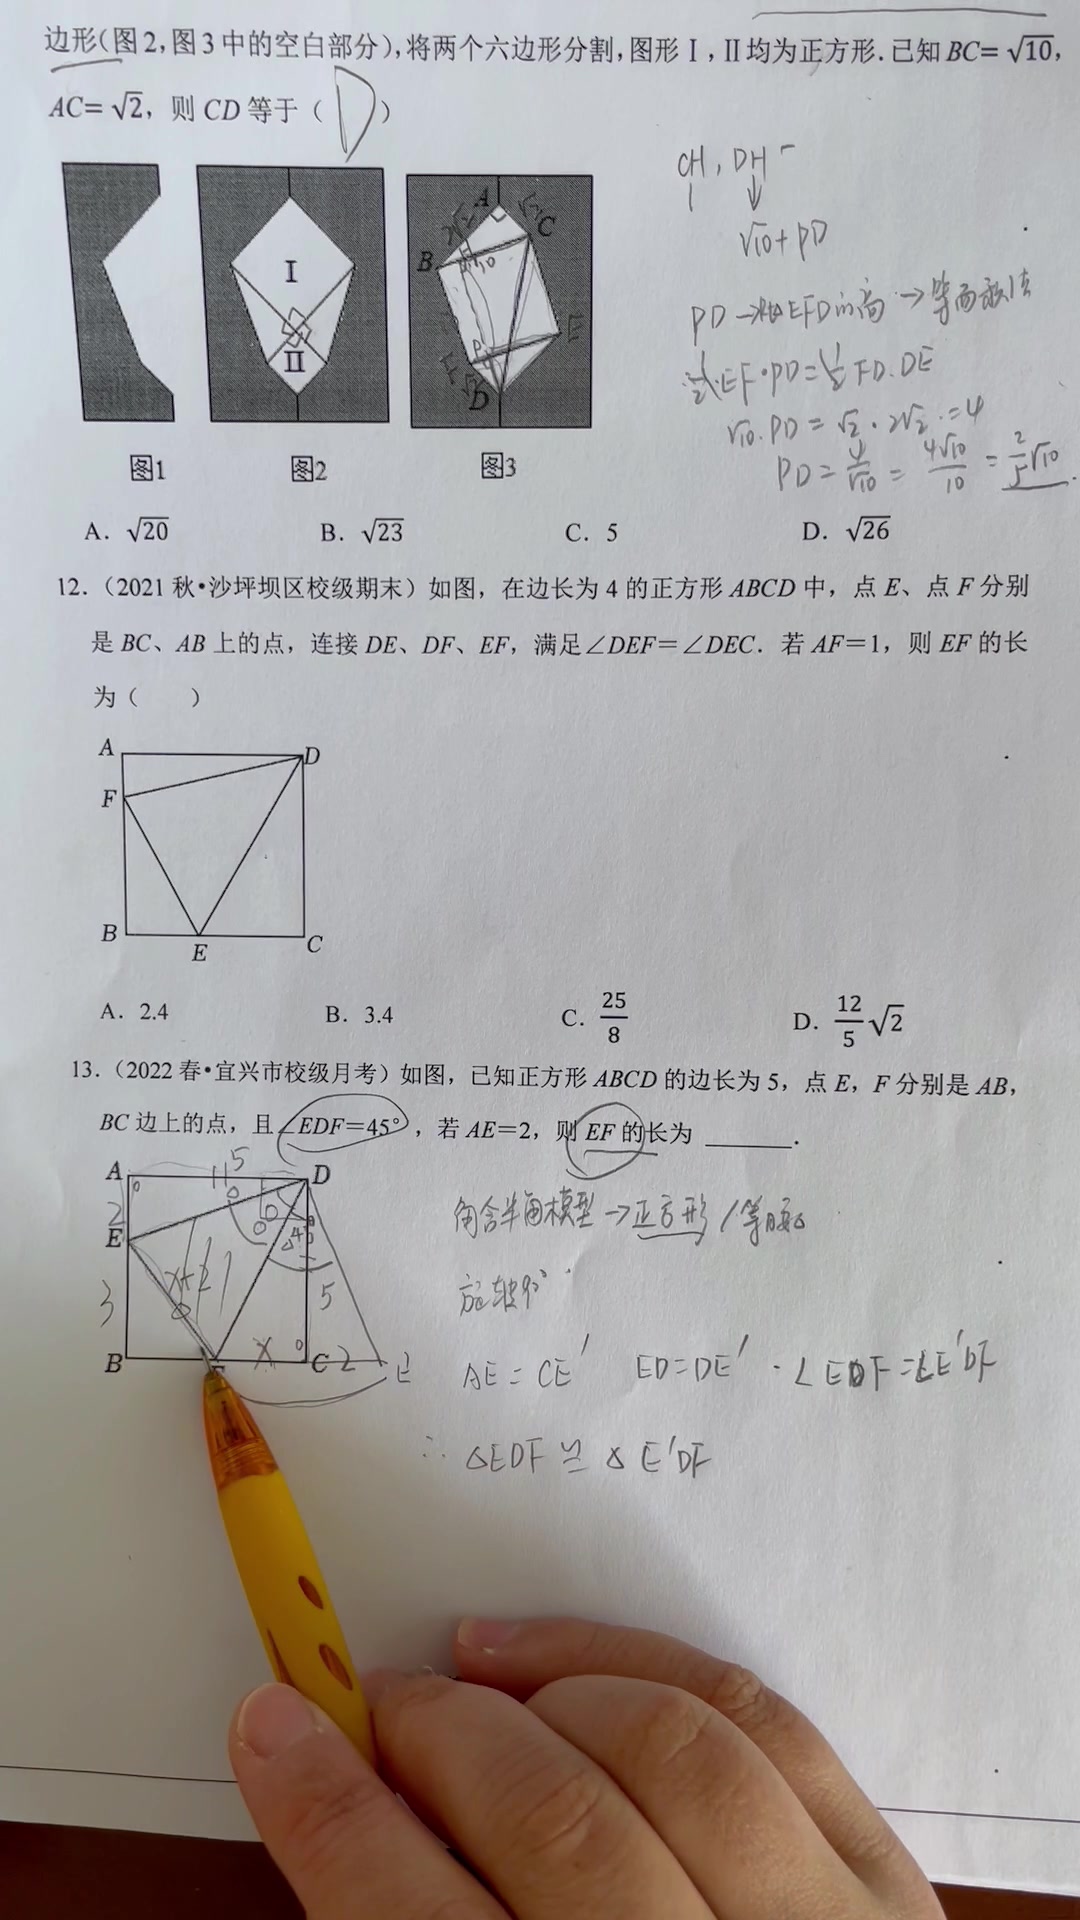 边形(图2,图3中的空白部分),将两个六边形分割,图形Ⅰ,Ⅱ均为正方形.已知BC=√10,
AC=√2, 则CD等于( D )
Ⅰ
Ⅱ
A
B
C
E
F
D
图1
图2
图3
CH, DH
√10+PD
PD→△EFD的高→等面积法
½·EF·PD=½FD.DE
√10.PD=√2·2√2=4
PD=4/√10=4√10/10=2/5√10
A. √20 B. √23 C. 5 D. √26
12.(2021秋•沙坪坝区校级期末)如图,在边长为4的正方形ABCD中,点E、点F分别
是BC、AB上的点,连接DE、DF、EF,满足∠DEF=∠DEC.若AF=1,则EF的长
为( )
A
D
F
B
E
C
A. 2.4 B. 3.4 C. 25/8 D. 12/5√2
13.(2022春•宜兴市校级月考)如图,已知正方形ABCD的边长为5,点E,F分别是AB,
BC边上的点,且∠EDF=45°,若AE=2,则EF的长为 ______.
A
5
D
2
E
x+2
3
5
B
x
C
2
E'
角含半角模型→正方形/等腰
旋转90°
AE=CE' ED=DE' ·∠EDF=∠E'DF
∴ △EDF≌△E'DF